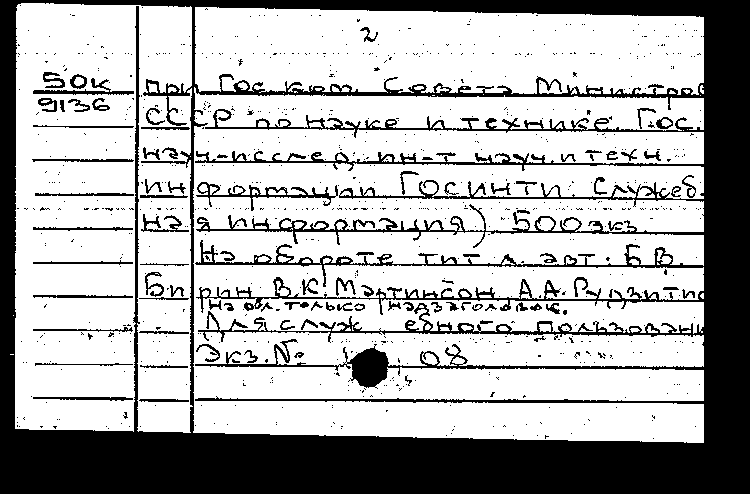 2
50К
9136
при Гос. ком. Совета Министров
СССР по науке и технике. Гос.
науч.-исслед. ин-т науч. и техн.
информации ГОСИНТИ. Служеб-
ная информация) 500 экз.
На обороте тит. л. авт: Б.В.
Бирин, В.К. Мартинсон, А.А. Рудзитис
На обл. только надзаголовок.
Для служебного пользовани
Экз. № 08